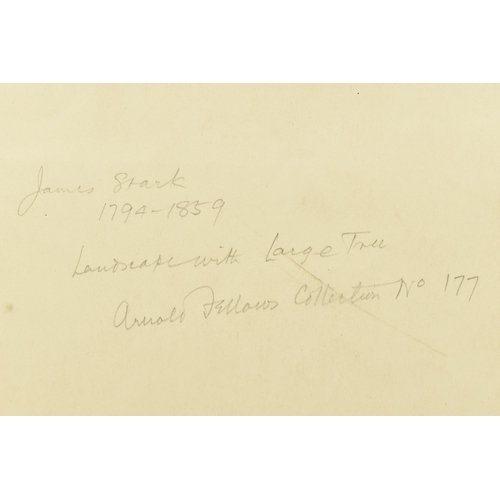 James Stark
1794-1859
Landscape with Large Tree
Arnold Fellows Collection No 177